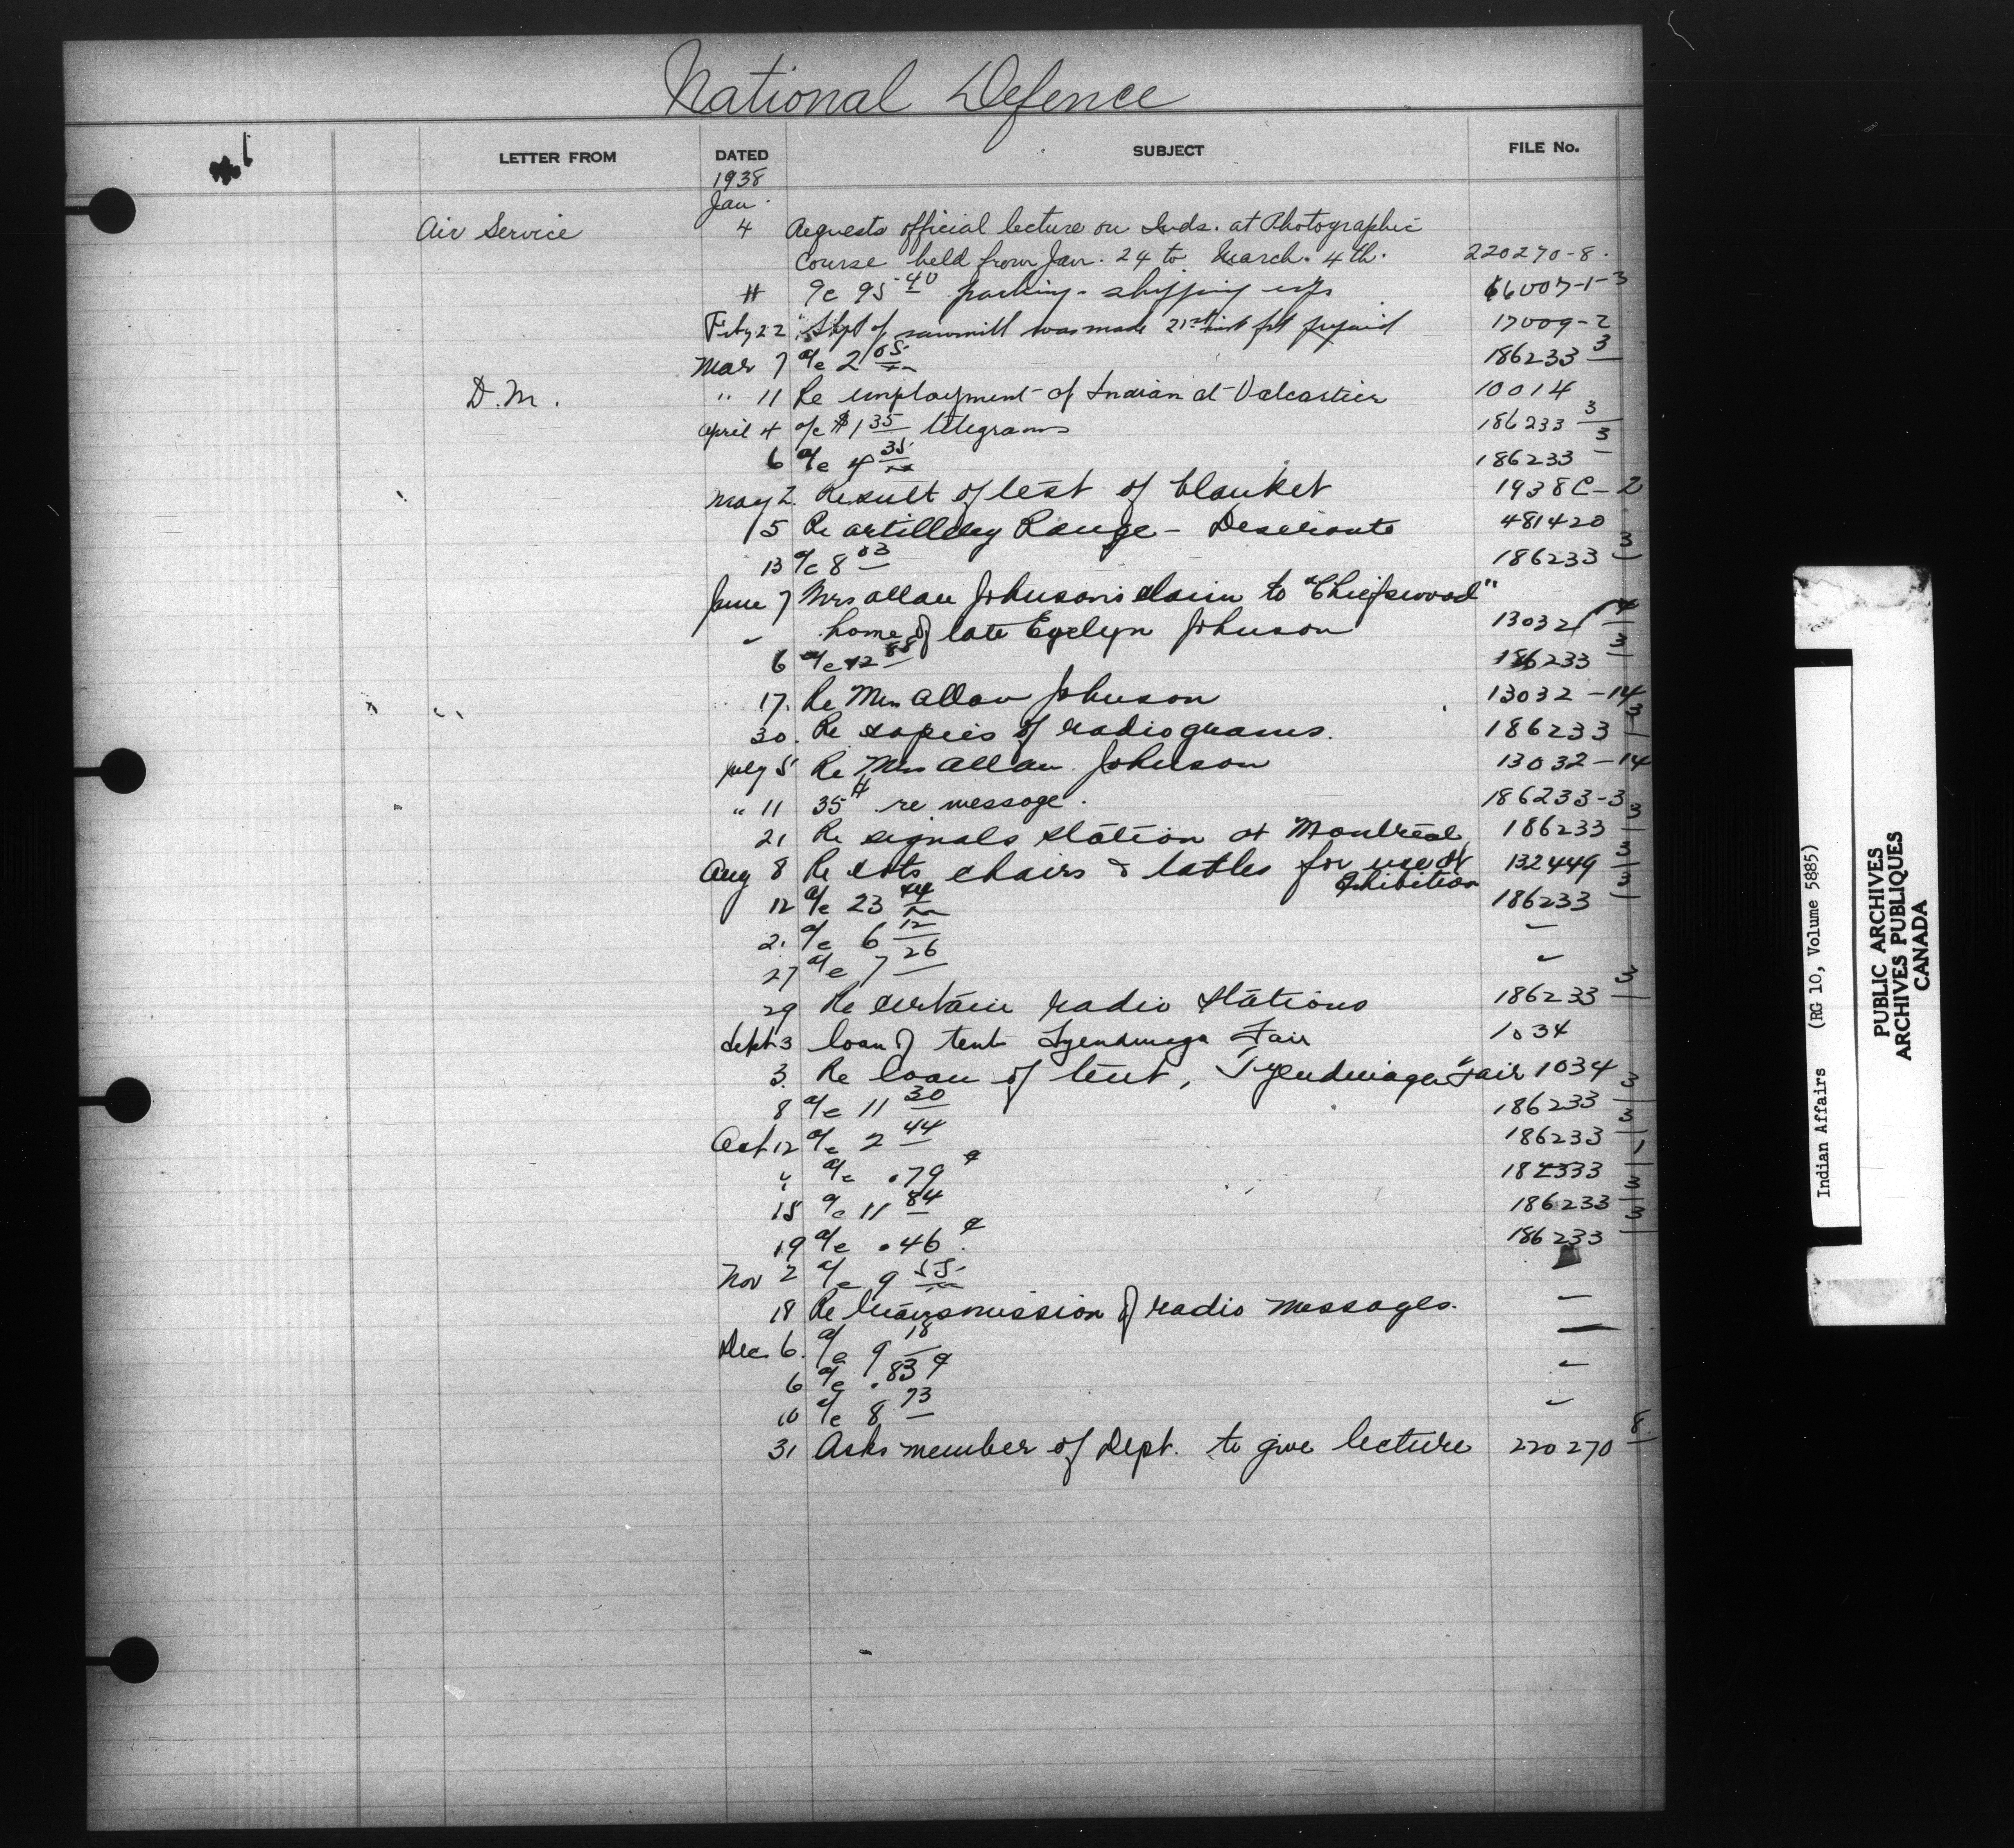 National Defence
LETTER FROM DATED SUBJECT FILE No.
1938
Jan.
Air Service 4 Requests official lecture on Inds. at Photographic
Course held from Jan. 24 to March. 4th. 220270-8.
11 a/c 95.40 packing - shipping 66007-1-3
Feby 22 Shpt of sawmill was made 21st inst frt prepaid 17009-2
Mar 7 a/c 2 05 186233 3
D.M. " 11 Re employment of Indian at Valcartier 10014
April 4 a/c $1 35 telegrams 186233 3
6 a/c 4 35 186233 3
May 2. Result of test of blanket 1938C-2
5 Re artillery Range - Deseronto 481420
13 a/c 8 03 186233 3
June 7 Mrs Allan Johnson's claim to "Chiefswood"
home of late Evelyn Johnson 13032 14
6 a/c 12 88 186233 3
17. Re Mrs Allan Johnson 13032-14
30. Re copies of radiograms. 186233 3
July 5 Re Mrs Allan Johnson 13032-14
" 11 35¢ re message. 186233-3
21 Re signals station at Montreal 186233 3
Aug 8 Re cots chairs & tables for use at 132449 3
Exhibition
12 a/c 23 44 186233 3
2. a/c 6 12 "
27 a/c 7 26 "
29 Re certain radio stations 186233 3
Sept 3 loan of tent Tyendinaga Fair 1034
3. Re loan of tent, Tyendinaga Fair 1034
8 a/c 11 30 186233 3
Oct 12 a/c 2 44 186233 3
" a/c .79¢ 182333 1
15 a/c 11 84 186233 3
19 a/c .46¢ 186233 3
Nov 2 a/c 9 55
18 Re transmission of radio messages. "
Dec. 6. a/c 9 18 "
6 a/c .83¢ "
10 a/c 8 73 "
31 Asks member of Dept. to give lecture 220270 8
Indian Affairs (RG 10, Volume 5885)
PUBLIC ARCHIVES
ARCHIVES PUBLIQUES
CANADA